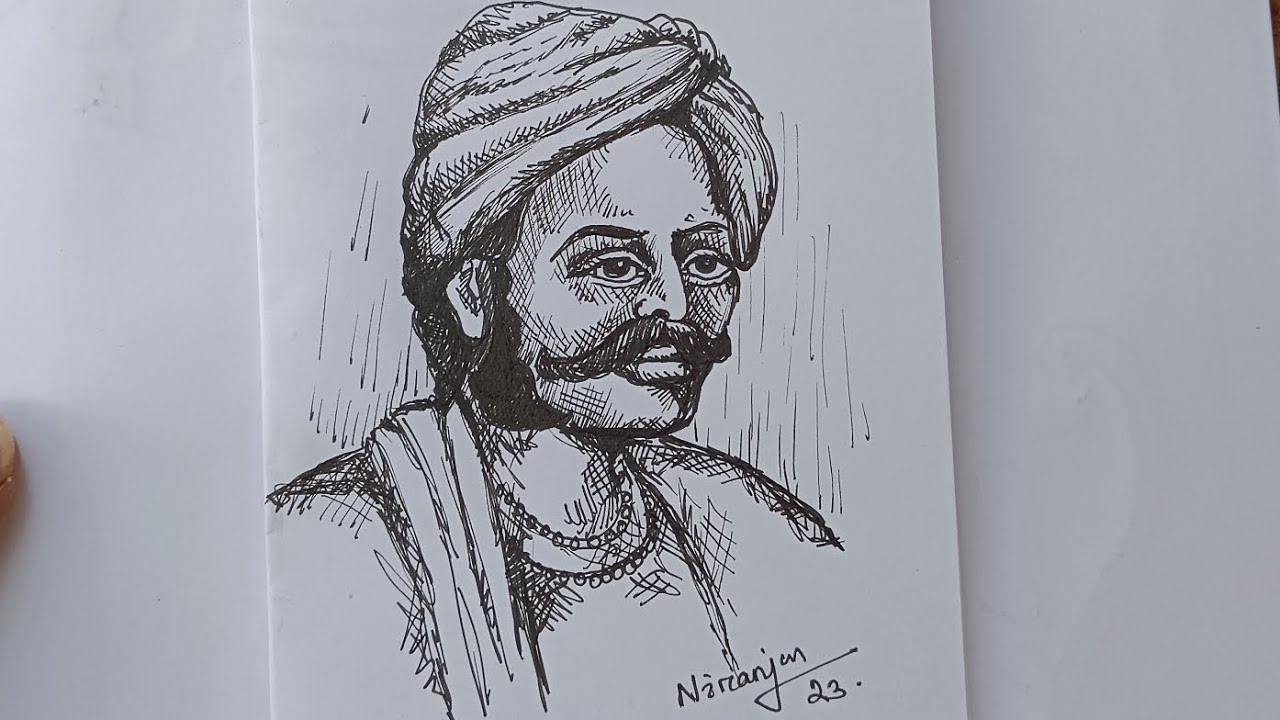 Niranjan
23.